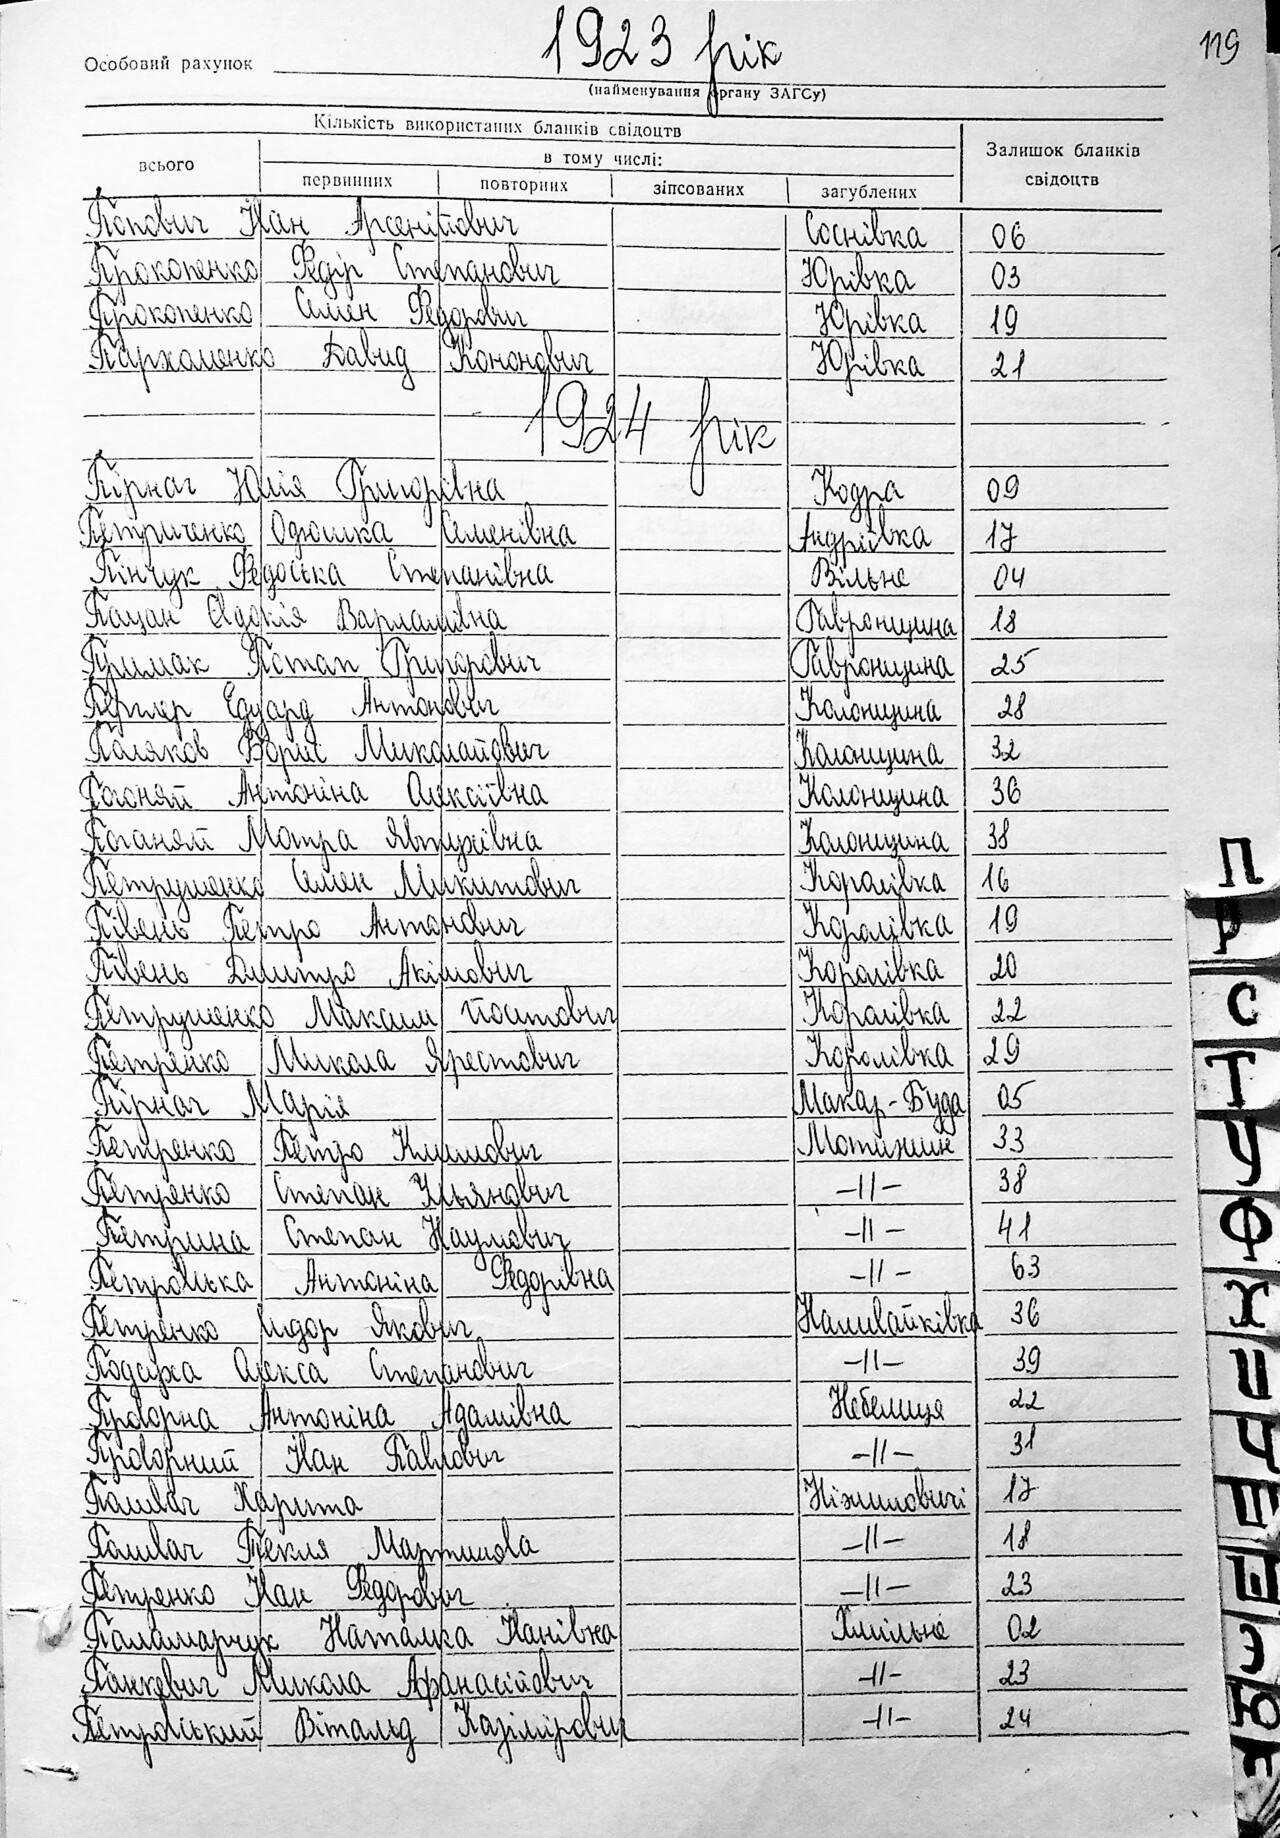 1923 рік
119
Особовий рахунок
(найменування органу ЗАГСу)
Кількість використаних бланків свідоцтв
всього
в тому числі:
Залишок бланків свідоцтв
первинних повторних зіпсованих загублених
Попович Іван Арсенійович Соснівка 06
Прокопенко Федір Степанович Юрівка 03
Прокопенко Семен Федорович Юрівка 19
Пархоменко Давид Кононович Юрівка 21
1924 рік
Пірнач Юлія Григорівна Кодра 09
Петриченко Одюшка Семенівна Андріївка 17
Пінчук Федоська Степанівна Вільне 04
Пацан Євдокія Варламівна Гавронщина 18
Примак Потап Григорович Гавронщина 25
Едуард Антонович Колонщина 28
Поляков Борис Миколайович Колонщина 32
Антоніна Олексіївна Колонщина 36
Поганяй Мотра Явтухівна Колонщина 38
Петрушенко Семен Микитович Королівка 16
Півень Петро Антонович Королівка 19
Півень Дмитро Акімович Королівка 20
Петрушенко Максим Королівка 22
Петренко Микола Арестович Королівка 29
Пірнач Марія Макар-Буда 05
Петренко Петро Климович Мотижин 33
Петренко Степан Ульянович -11- 38
Петрина Степан Наумович -11- 41
Петровська Антоніна Федорівна -11- 63
Петренко Сидор Якович Наливайківка 36
Подсуха Олекса Степанович -11- 39
Проворна Антоніна Адамівна Небелиця 22
Проворний Іван Павлович -11- 31
Паливач Харита Ніжиловичі 17
Паливач Текля Мартинова -11- 18
Петренко Іван Федорович -11- 23
Паламарчук Наталка Іванівна Хмільне 02
Панкевич Микола Афанасійович -11- 23
Петровський Вітальд Казімірович -11- 24
П
Р
С
Т
У
Ф
Х
Ц
Ч
Ш
Щ
Э
Ю
Я